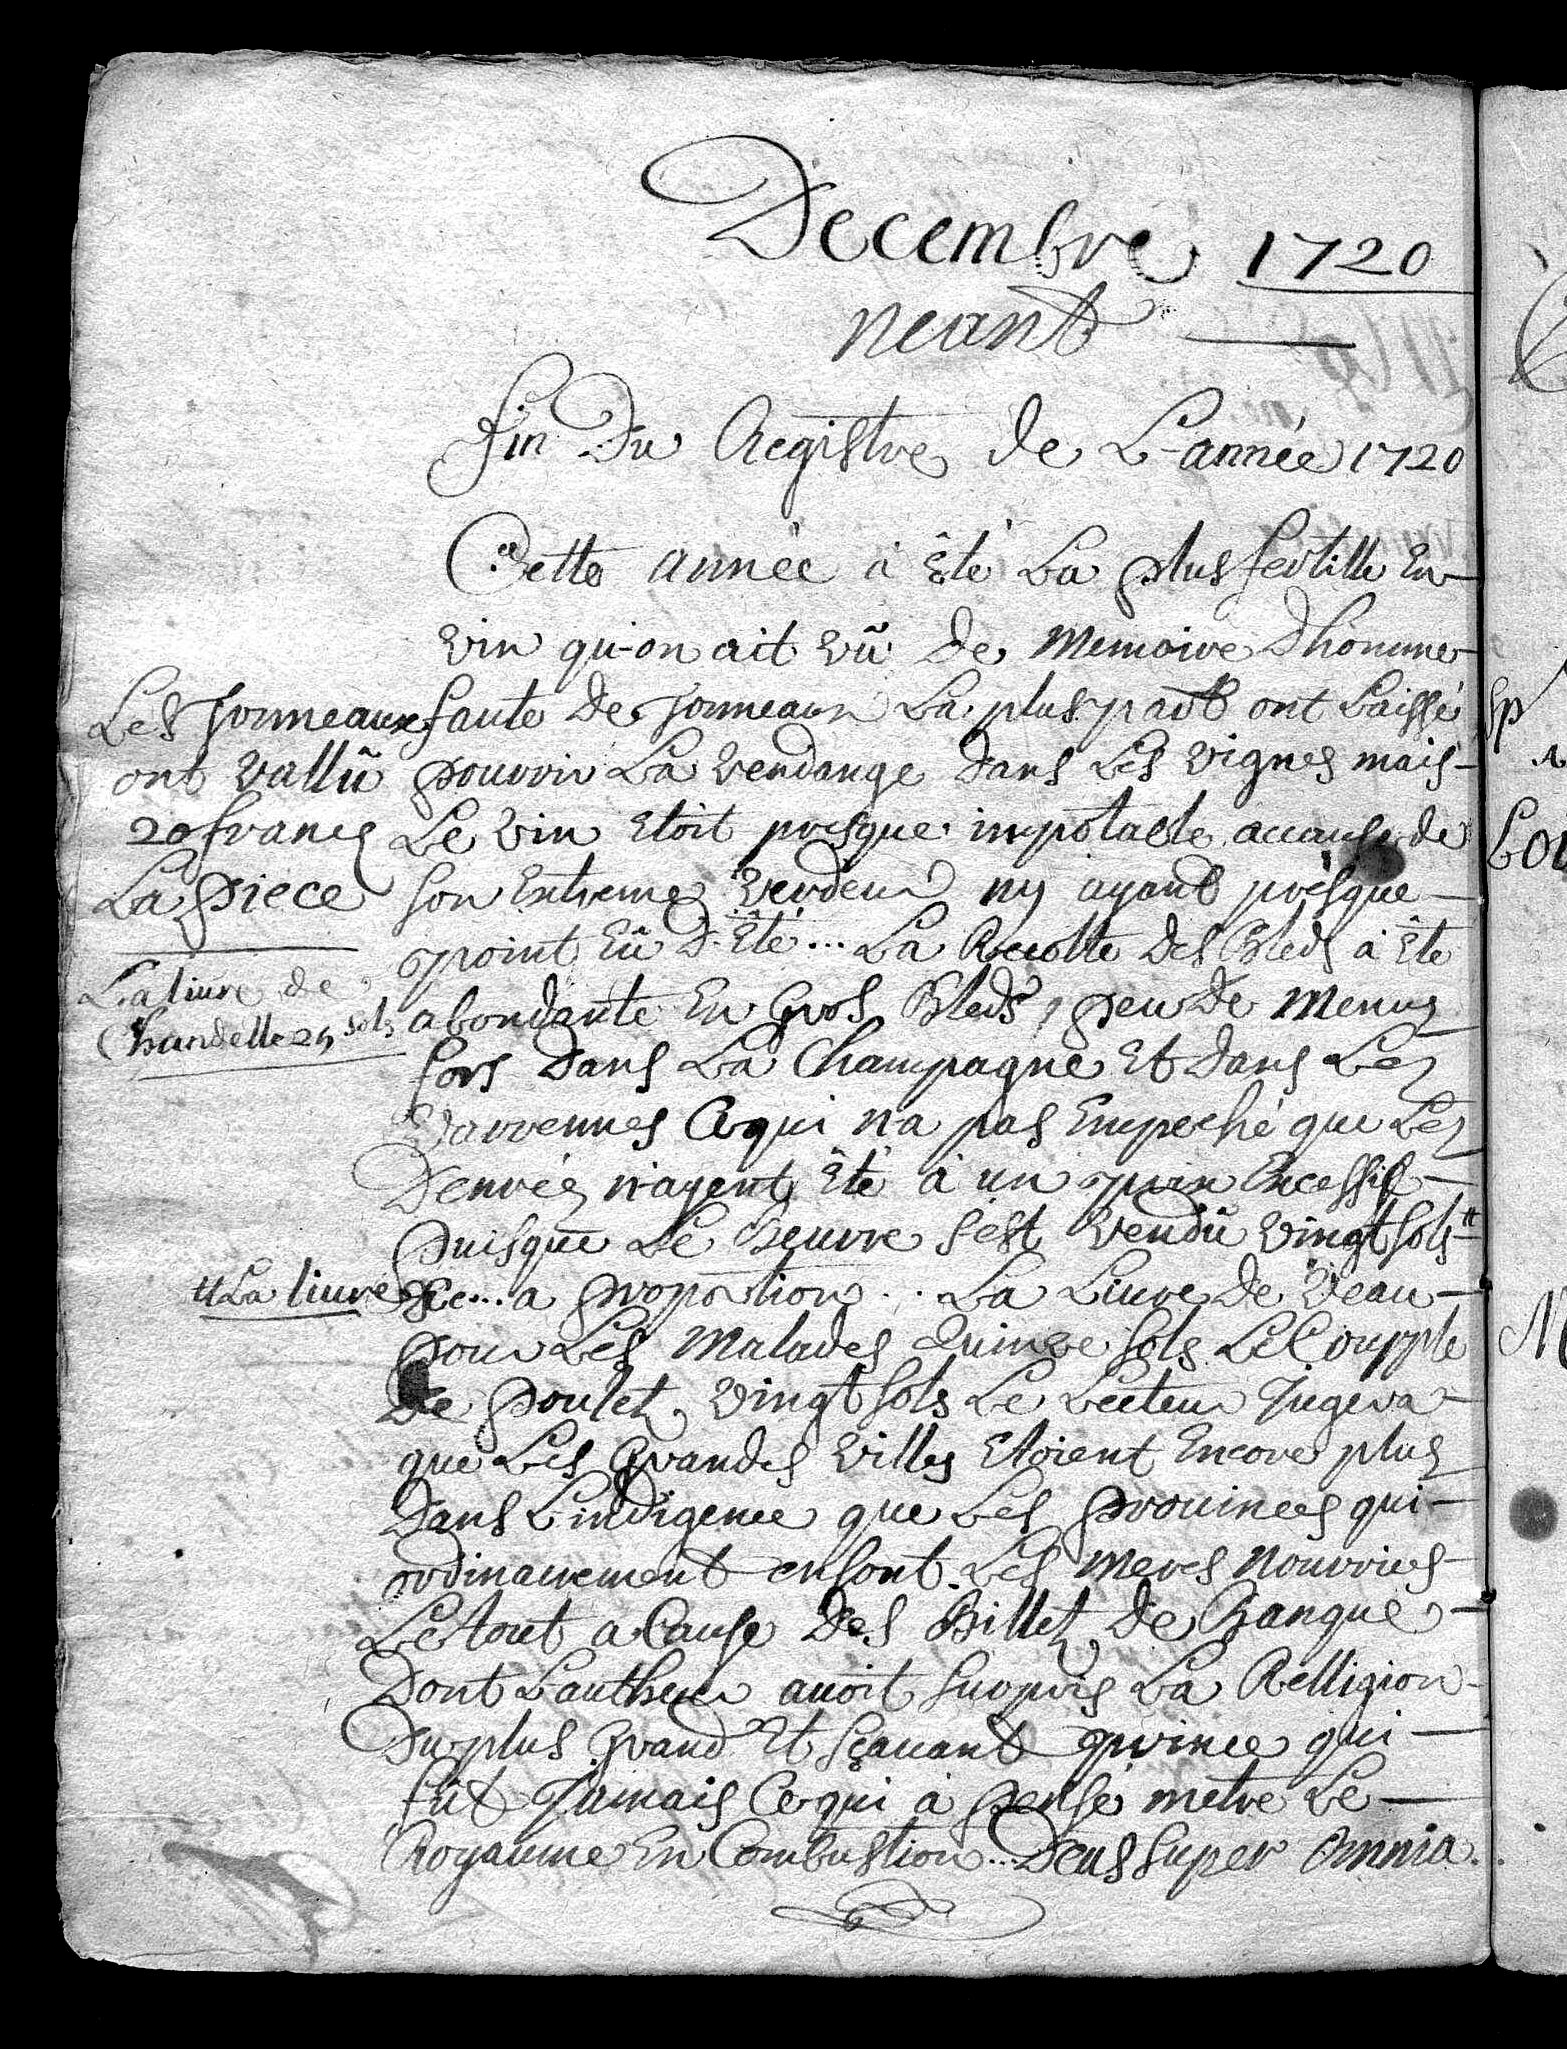 Decembre 1720
neant
fin Du Registre de L'année 1720
Cette année à Êté La plus fertille En
vin qu-on ait vû de Memoire Dhomme
faute de Tonneaux La plus part ont Laissé
pourrir La Vendange dans Les vignes mais
Le vin Etoit presque impotable accause de
son Extreme verdeur ny ayant presque
point Eû d'Êté... La Recolte des Bleds à Êté
abondante En Gros Bleds, peu de Menus
fors dans La Champagne Et dans Les
Varrennes Cequi n'a pas Empeché que Les
Denrées n'ayent Êté à un prix Excessif
Puisque Le Beurre s'est vendû vingt sols #
&c... a proportion... La Livre de Veau
pour Les Malades Quinze sols Le Coupple
de poulets vingt sols Le Lecteur Jugera
que Les Grandes villes Etoient Encore plus
dans L'indigence que Les provinces qui
ordinairement en sont Les meres nourrices
Le tout a Cause des Billets de Banque
Dont L'autheur avoit surpris La Relligion
Du plus grand Et sçavant prince qui
fût Jamais Cequi à pensé metre Le
Royaume En Combustion... Deus super Omnia.
Les Tonneaux
ont vallû
20 francs
La piece
La livre de
Chandelle 25 sols
# La livre